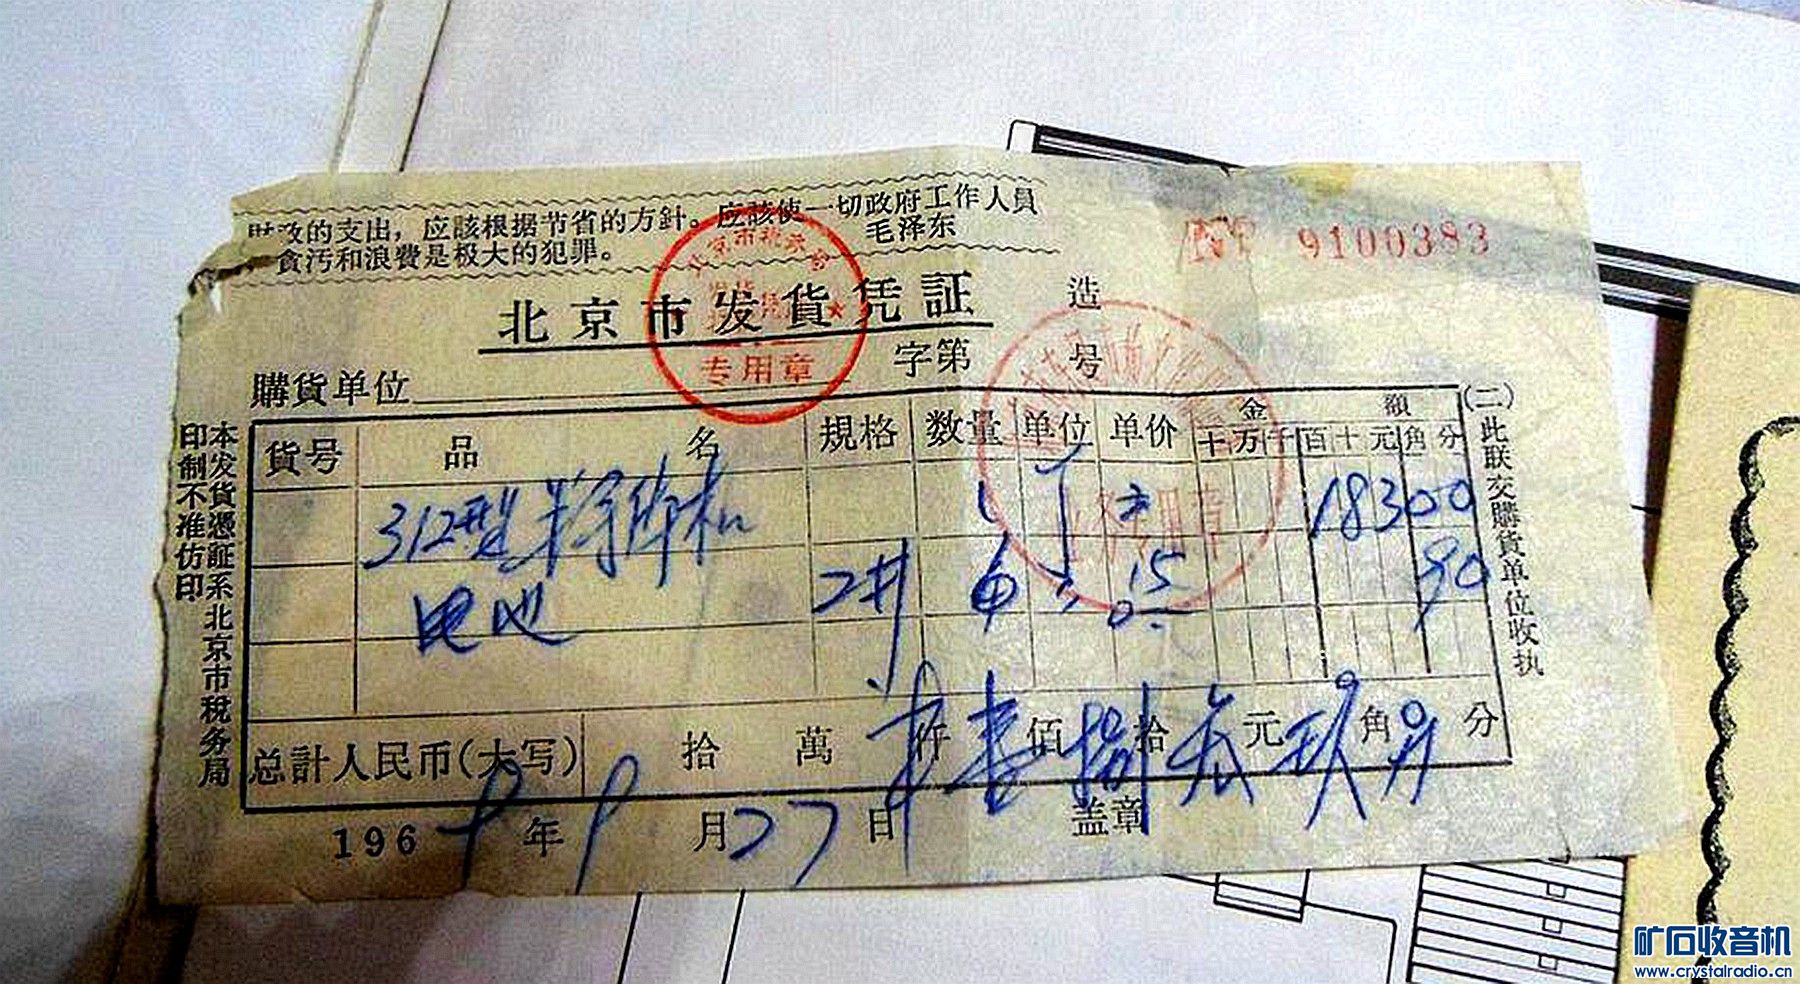 财政的支出，应該根据节省的方針。应該使一切政府工作人員
貪污和浪費是极大的犯罪。
毛泽东
№ 9100383
北京市发貨凭証
造
字第 号
購貨单位
专用章
貨号 品 名 規格 数量 单位 单价 金 額
十 万 千 百 十 元 角 分
312型 183 00
电池 2井 6 0.15 90
总計人民币(大写) 拾 萬 仟 壹 佰 捌 拾 叁 元 玖 角 另 分
196 年 9 月 27 日 盖章
(二)此联交購貨单位收执
本发貨憑証系北京市稅务局
印制不准仿印
矿石收音机
www.crystalradio.cn